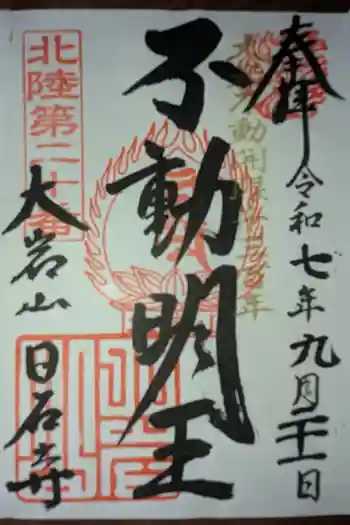 奉拝
令和七年九月二十一日
不動明王
北陸第二十番
大岩山
日石寺